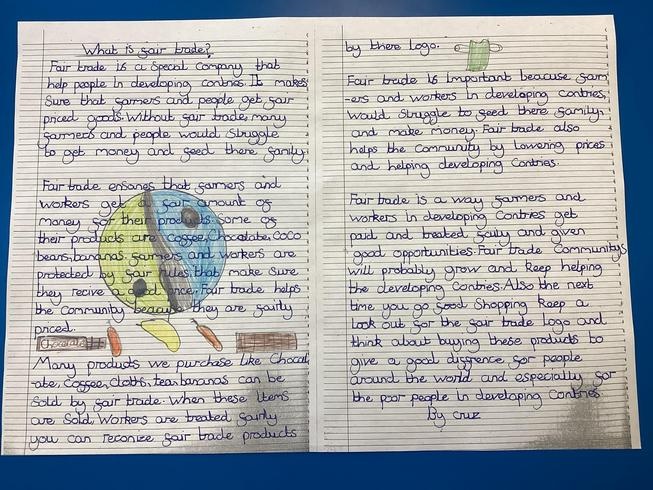 What is fair trade?
Fair trade is a special company that
help people in developing contries. It makes
sure that farmers and people get fair
priced goods. Without fair trade, many
farmers and people would struggle
to get money and feed there family.
Fair trade ensures that farmers and
workers get a fair amount of
money for their products. some of
their products are coffee, Chocolate, coco
beans, bananas. farmers and workers are
protected by fair rules that make sure
they recive a good price. Fair trade helps
the community because they are fairly
priced.
Chocolate
Many products we purchase like Chocol
-ate, Coffee, Cloths, tea, bananas can be
sold by fair trade. When these items
are sold, Workers are treated fairly
you can reconize fair trade products
by there logo.
Fair trade is important beacuse farm
-ers and workers in developing contries,
would struggle to feed there family,
and make money. Fair trade also
helps the community by lowering prices
and helping developing contries.
Fair trade is a way farmers and
workers in developing contries get
paid and treated faily and given
good opportunities. Fair trade communitys
will probably grow and keep helping
the developing contries. Also the next
time you go food shopping keep a
look out for the fair trade logo and
think about buying these products to
give a good diffrence for people
around the world and especially for
the poor people in developing contries.
By Cruz